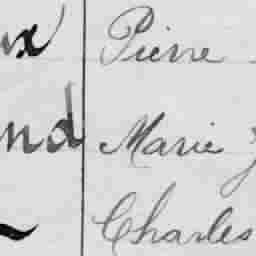 ux Pierre
nd Marie
Charles